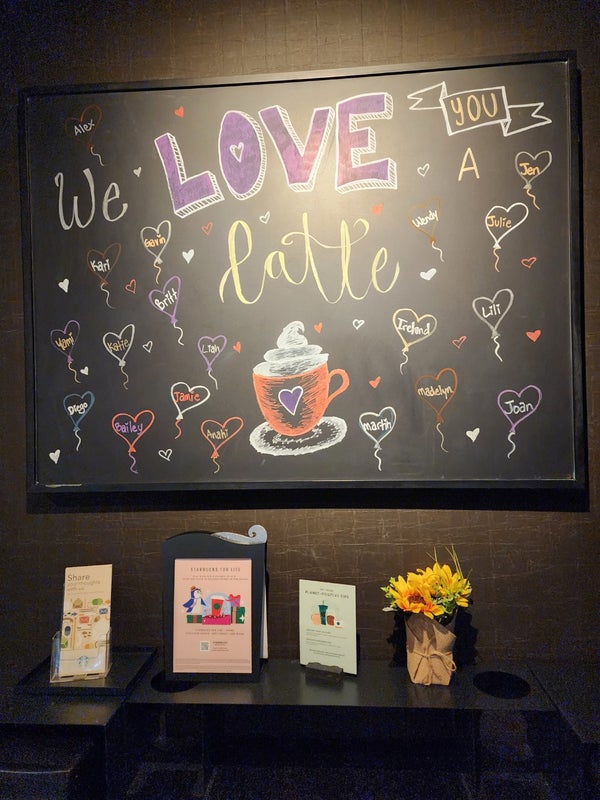 We LOVE
YOU
A
latte
Alex
Jen
Gavin
Wendy
Julie
Kari
Britt
Lili
Yomi
Katie
Liah
Ireland
Diego
Jamie
madelyn
Bailey
Anahi
martin
Joan
Share
your thoughts
with us.
STARBUCKS FOR LIFE
PLANET-POSITIVE SIPS